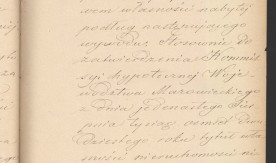 wem własności nabytej
podług następującego
wywodu, stosownie do
zatwierdzenia Kommis
syi hypotecznej Woje
wództwa Mazowieckiego
z dnia jedenastego Sier
pnia tysiąc ośmset dwu
dziestego roku tytuł wła
sności nieruchomości ni